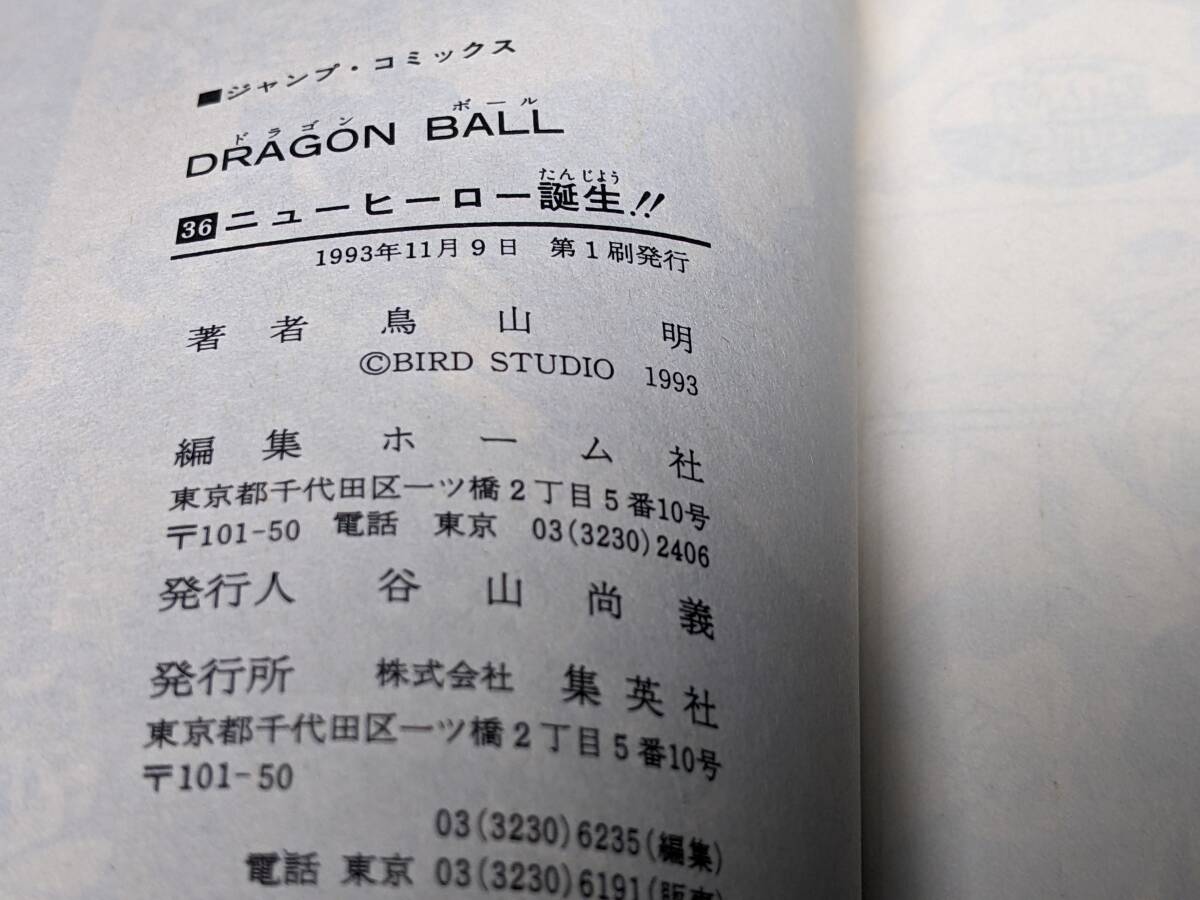 ■ジャンプ・コミックス
ドラゴン ボール
DRAGON BALL
たんじょう
36ニューヒーロー誕生!!
1993年11月9日 第1刷発行
著者 鳥山明
©BIRD STUDIO 1993
編集 ホーム社
東京都千代田区一ツ橋2丁目5番10号
〒101-50 電話 東京 03(3230)2406
発行人 谷山尚義
発行所 株式会社 集英社
東京都千代田区一ツ橋2丁目5番10号
〒101-50
03(3230)6235(編集)
電話 東京 03(3230)6191(販売)